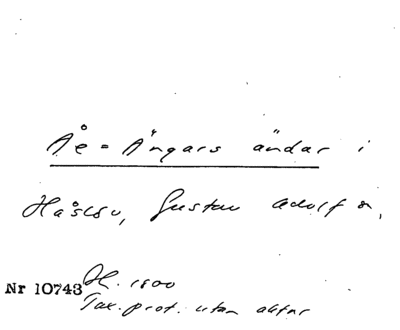 Åe = Ängars ändar i
Håslöv, Gustav Adolf s,
Nr 10743 H. 1800
Tax. prot. utan aktnr